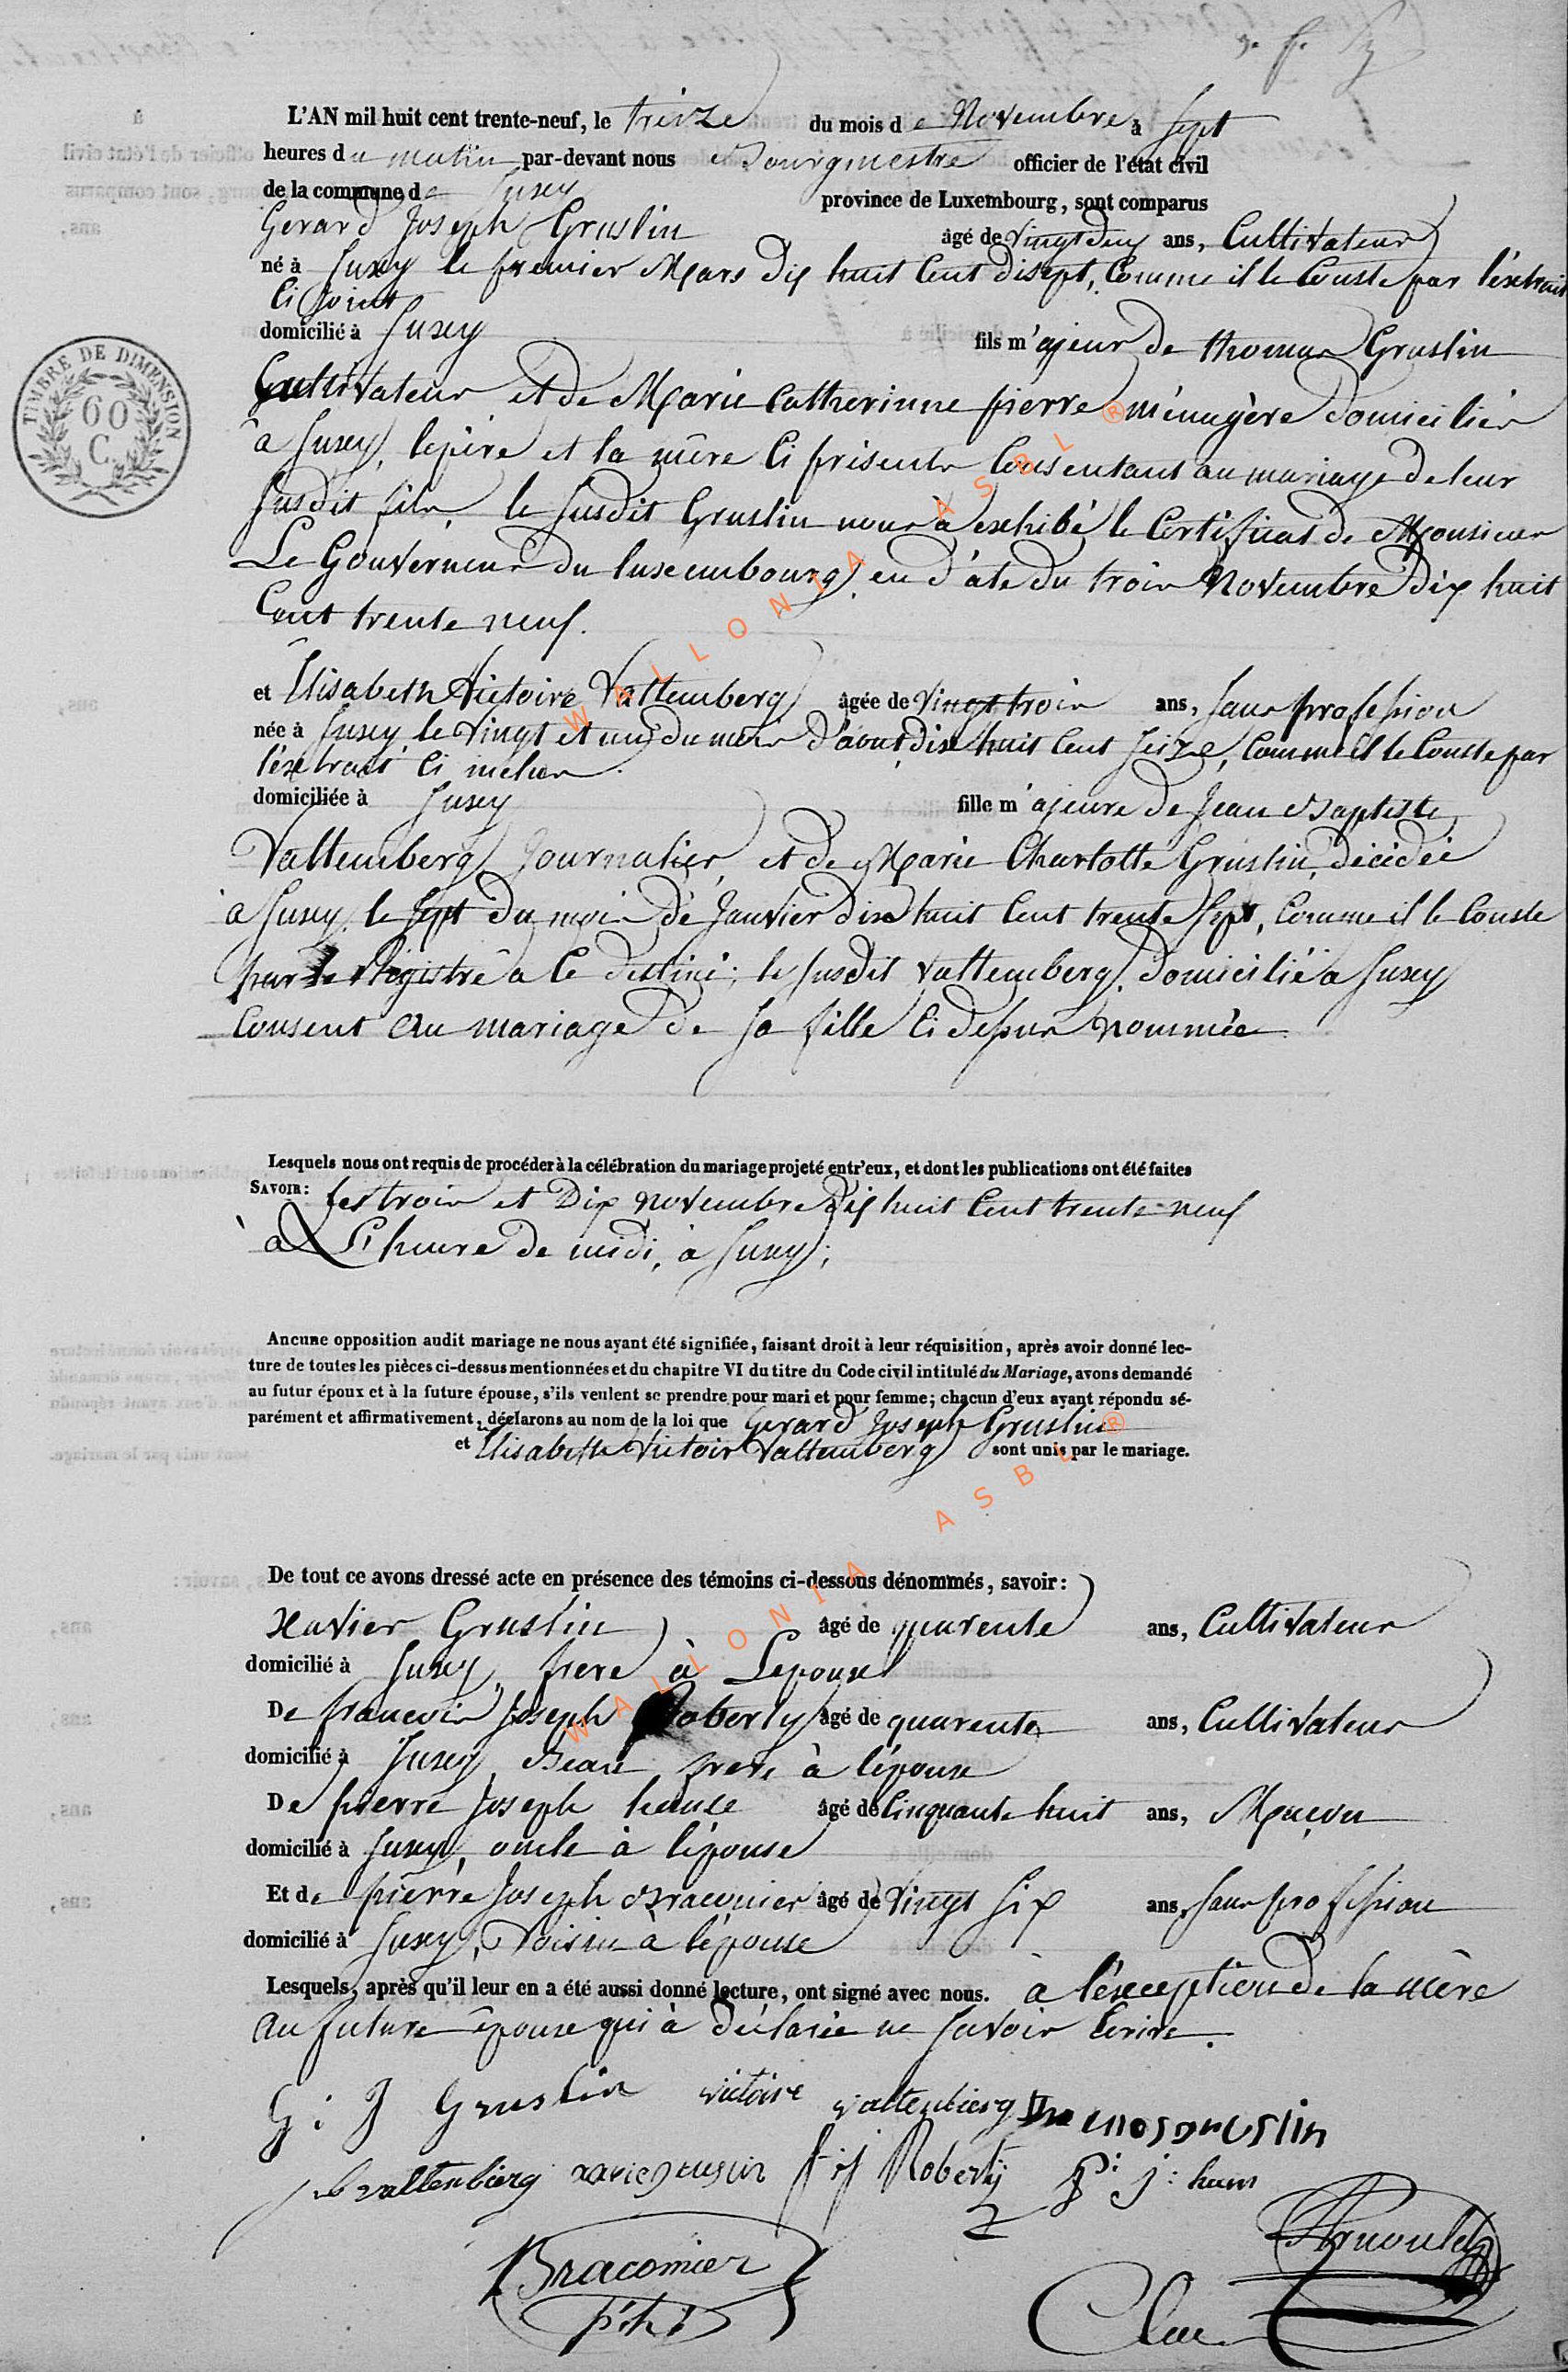 L'AN mil huit cent trente-neuf, le treize du mois de Novembre à sept
heures du matin par-devant nous Bourgmestre officier de l'état civil
de la commune de Suxy province de Luxembourg, sont comparus
Gerard Joseph Gruslin âgé de vingt deux ans, Cultivateur
né à Suxy le premier Mars dix huit Cent disept, Comme il le Conste par l'éxtrait
Ci joint
domicilié à Suxy fils m'ajeur de thomas Gruslin
Cultivateur et de Marie Catherinne pierre ménagère domiciliés
à Suxy, le père et la mère Ci présents Consentant au mariage de leur
Susdit fils, le Susdit Gruslin nous à exhibé le Certificat de Monsieur
Le Gouverneur du luxembourg, en d'ate du trois Novembre dix huit
Cent trente neuf.
et Elisabeth Victoire Valtemberg âgée de vingt trois ans, Sans profession
née à Suxy le vingt et un du mois d'août dix huit Cent Seize, Comme il le Conste par
l'éxtrait Ci inclus.
domiciliée à Suxy fille m'ajeure de Jean Baptiste
Valtemberg Journalier, et de Marie Charlotte Gruslin, décédée
à Suxy, le Sept du mois de Janvier dix huit Cent trente Sept, Comme il le Conste
par le Régistre à Ce destiné; le Susdit Valtemberg, domicilié à Suxy
Consent au mariage de Sa fille Ci dessus nommée
Lesquels nous ont requis de procéder à la célébration du mariage projeté entr'eux, et dont les publications ont été faites
SAVOIR: Les trois et Dix novembre dix huit Cent trente-neuf
à L'heure de midi, à Suxy;
Ancune opposition audit mariage ne nous ayant été signifiée, faisant droit à leur réquisition, après avoir donné lec-
ture de toutes les pièces ci-dessus mentionnées et du chapitre VI du titre du Code civil intitulé du Mariage, avons demandé
au futur époux et à la future épouse, s'ils veulent se prendre pour mari et pour femme; chacun d'eux ayant répondu sé-
parément et affirmativement, déclarons au nom de la loi que Gerard Joseph Gruslin
et Elisabeth Victoir Valtemberg sont unis par le mariage.
De tout ce avons dressé acte en présence des témoins ci-dessous dénommés, savoir:
Xavier Gruslin âgé de quarente ans, Cultivateur
domicilié à Suxy, frere à Lepoux
De francois Joseph Roberty âgé de quarente ans, Cultivateur
domicilié à Suxy, Beau frere à l'épouse
De pierre Joseph âgé de Cinquante huit ans, Maçon
domicilié à Suxy, oncle à l'épouse
Et de pierre Joseph Braconier âgé de vingt Six ans, Sans profession
domicilié à Suxy, Voisin à l'épouse
Lesquels, après qu'il leur en a été aussi donné lecture, ont signé avec nous. à l'éxception de la mère
au future épouse qui à déclarée ne Savoir Ecrire.
G: J Gruslin victoire valtenbierg Thomos Gruslin
j b valtenbierg xavie gruslin f j Roberty P: j: hans
Braconnier Arnould
TIMBRE DE DIMENSION
60
C.
WALLONIA ASBL ®
WALLONIA ASBL ®